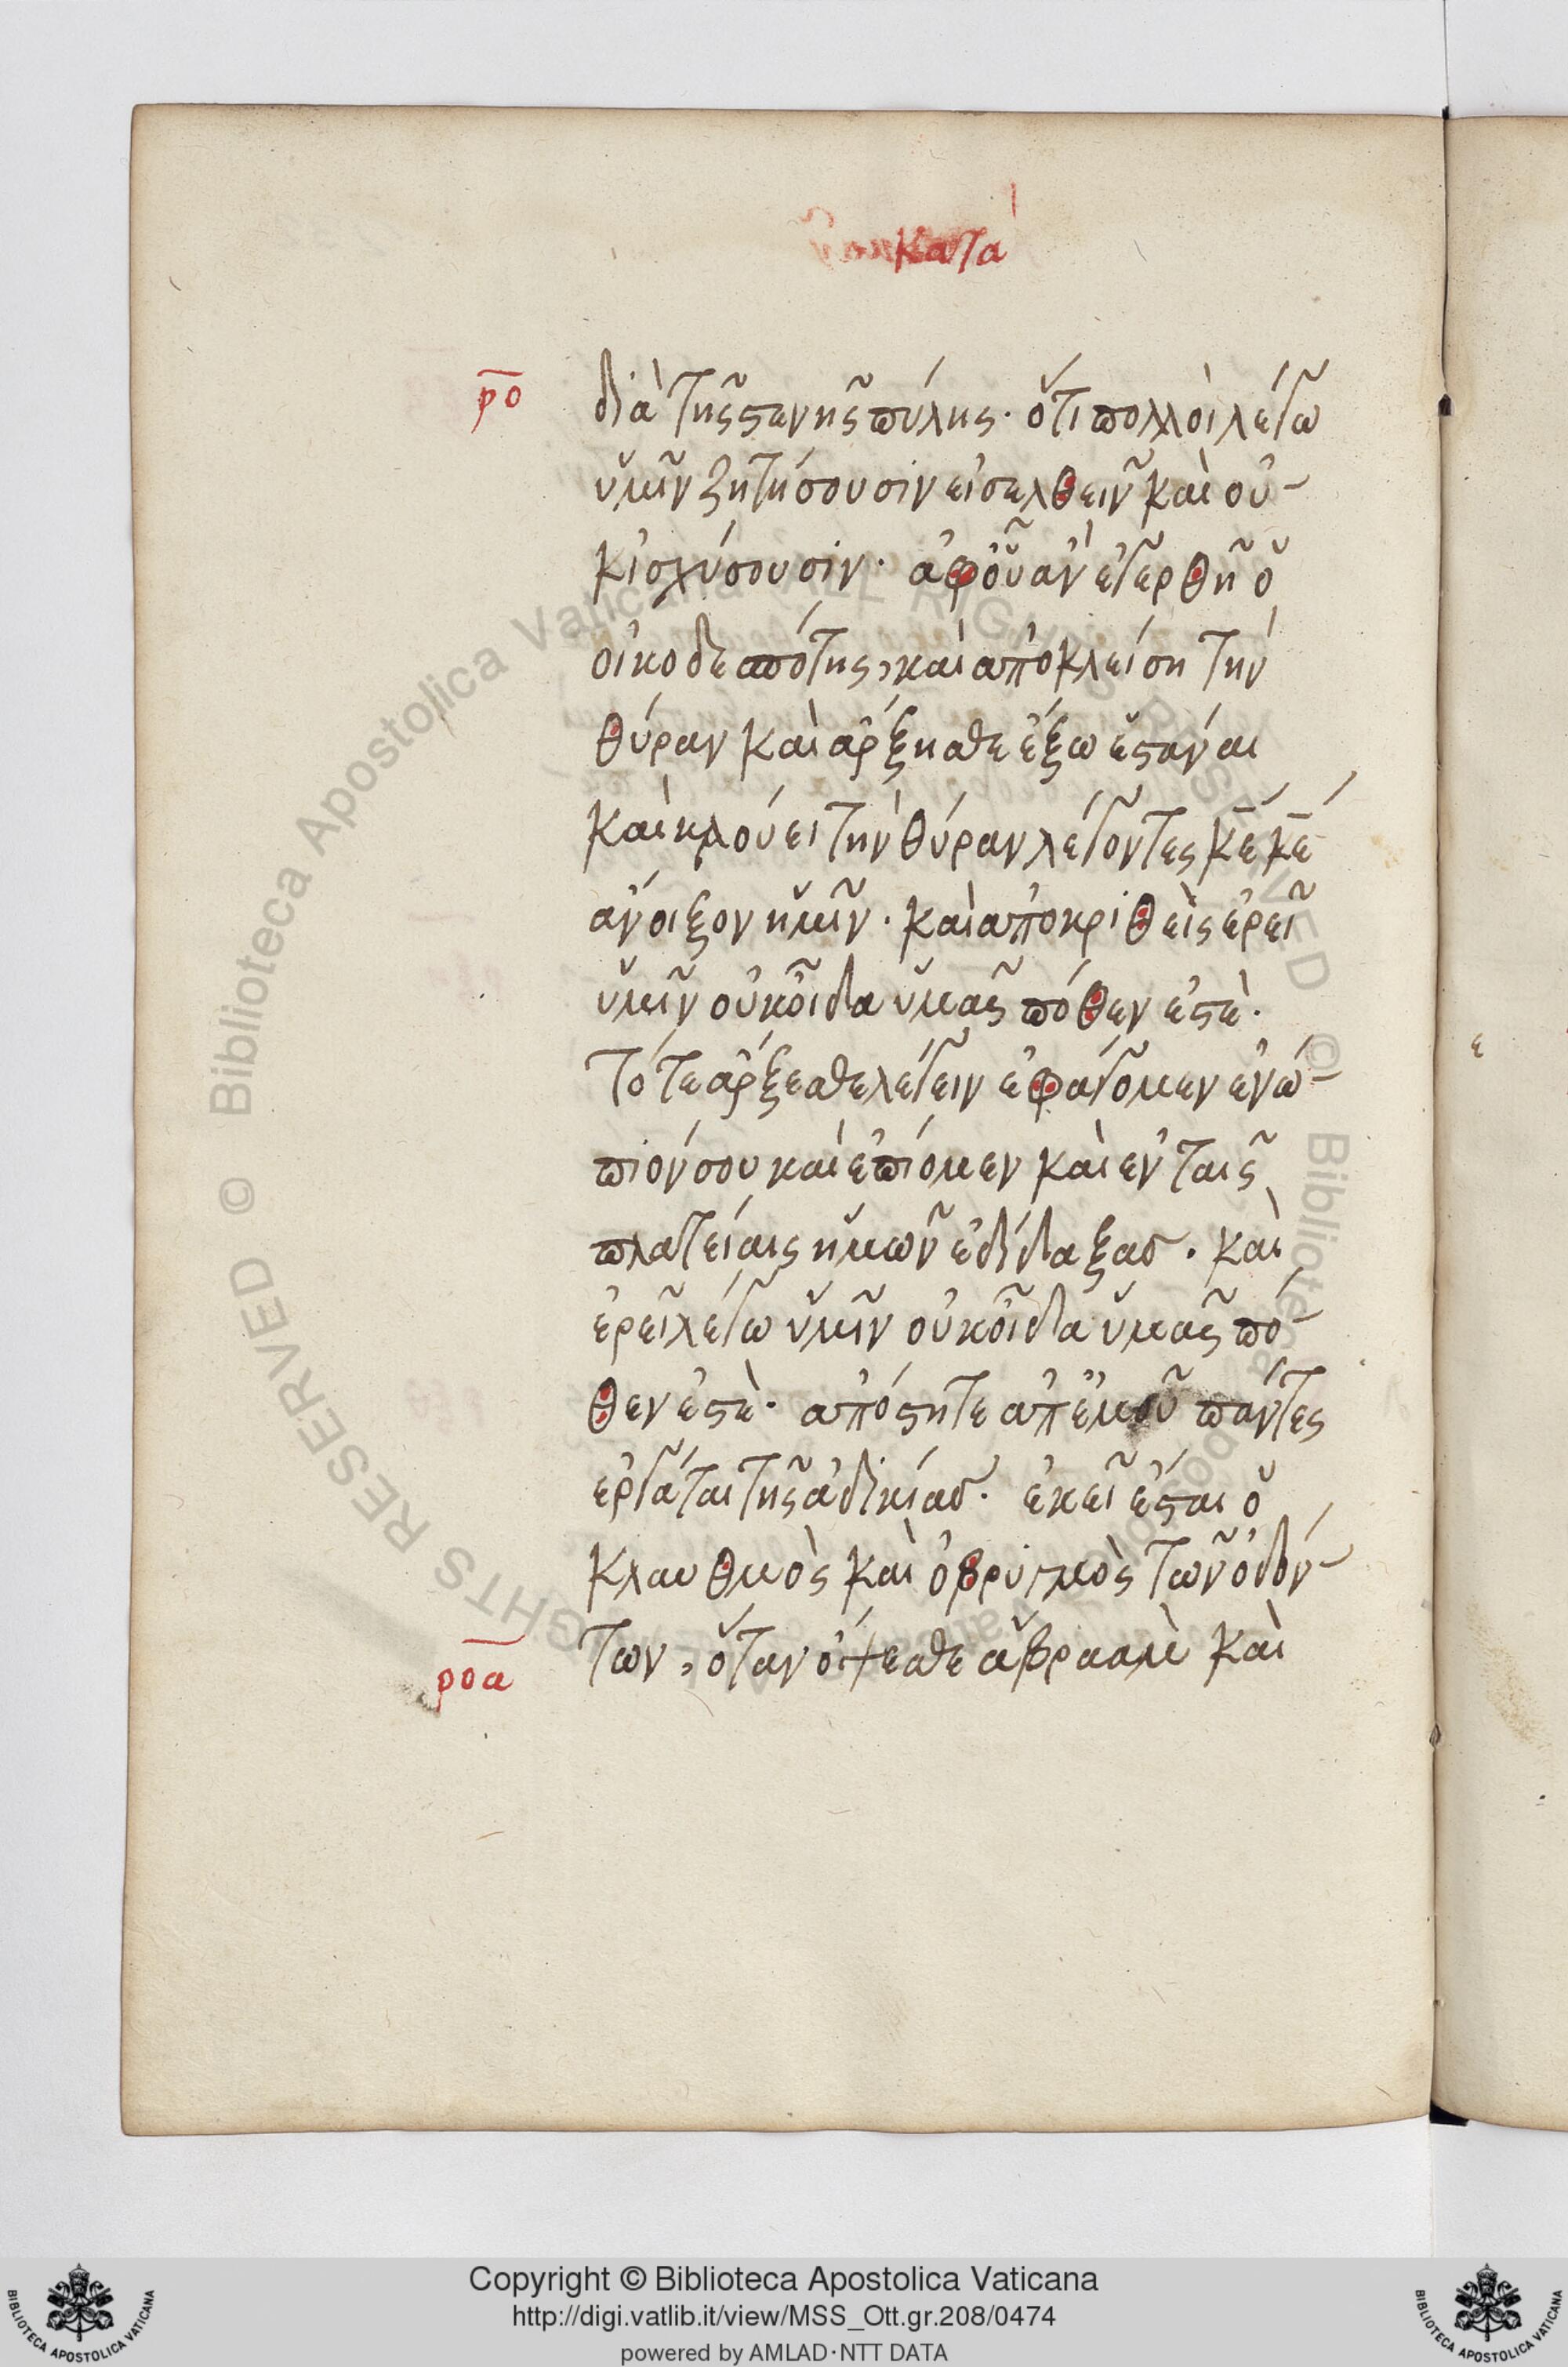 κατὰ
ρο
διὰ τῆς στενῆς πύλης· ὅτι πολλοὶ λέγω
ὑμῖν ζητήσουσιν εἰσελθεῖν καὶ οὐ-
κ ἰσχύσουσιν· ἀφ' οὗ ἂν ἐγερθῇ ὁ
οἰκοδεσπότης, καὶ ἀποκλείση τὴν
θύραν καὶ ἄρξησθε ἔξω ἑστάναι
καὶ κρούει τὴν θύραν λέγοντες κ̅ε κ̅ε
ἄνοιξον ἡμῖν· καὶ ἀποκριθεὶς ἐρεῖ
ὑμῖν οὐκ οἶδα ὑμᾶς πόθεν ἐστὲ·
τότε ἄρξεσθε λέγειν ἐφάγομεν ἐνώ-
πιόν σου καὶ ἐπίομεν καὶ ἐν ταῖς
πλατείαις ἡμῶν ἐδίδαξας· καὶ
ἐρεῖ λέγω ὑμῖν οὐκ οἶδα ὑμᾶς πό-
θεν ἐστὲ· ἀπόστητε ἀπ' ἐμοῦ πάντες
ἐργάται τῆς ἀδικίας· ἐκεῖ ἔσται ὁ
κλαυθμὸς καὶ ὁ βρυγμὸς τῶν ὀδόν-
των, ὅταν ὄψεσθε ἀβραὰμ καὶ
ροα
© Biblioteca Apostolica Vaticana ALL RIGHTS RESERVED
Copyright © Biblioteca Apostolica Vaticana
http://digi.vatlib.it/view/MSS_Ott.gr.208/0474
powered by AMLAD·NTT DATA
BIBLIOTECA APOSTOLICA VATICANA
BIBLIOTECA APOSTOLICA VATICANA